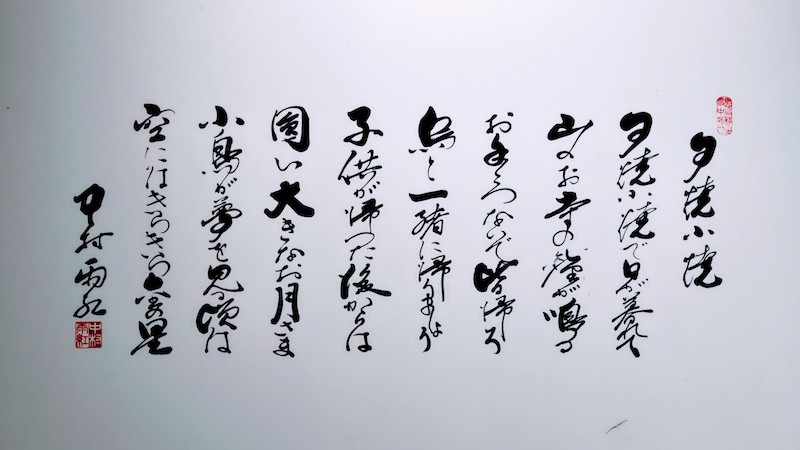 夕焼小焼
夕焼小焼で日が暮れて
山のお寺の鐘が鳴る
お手々つないで皆帰ろ
烏と一緒に帰りましょう
子供が帰つた後からは
圓い大きなお月さま
小鳥が夢を見る頃は
空にはきらきら金の星
中村雨紅
中村雨紅